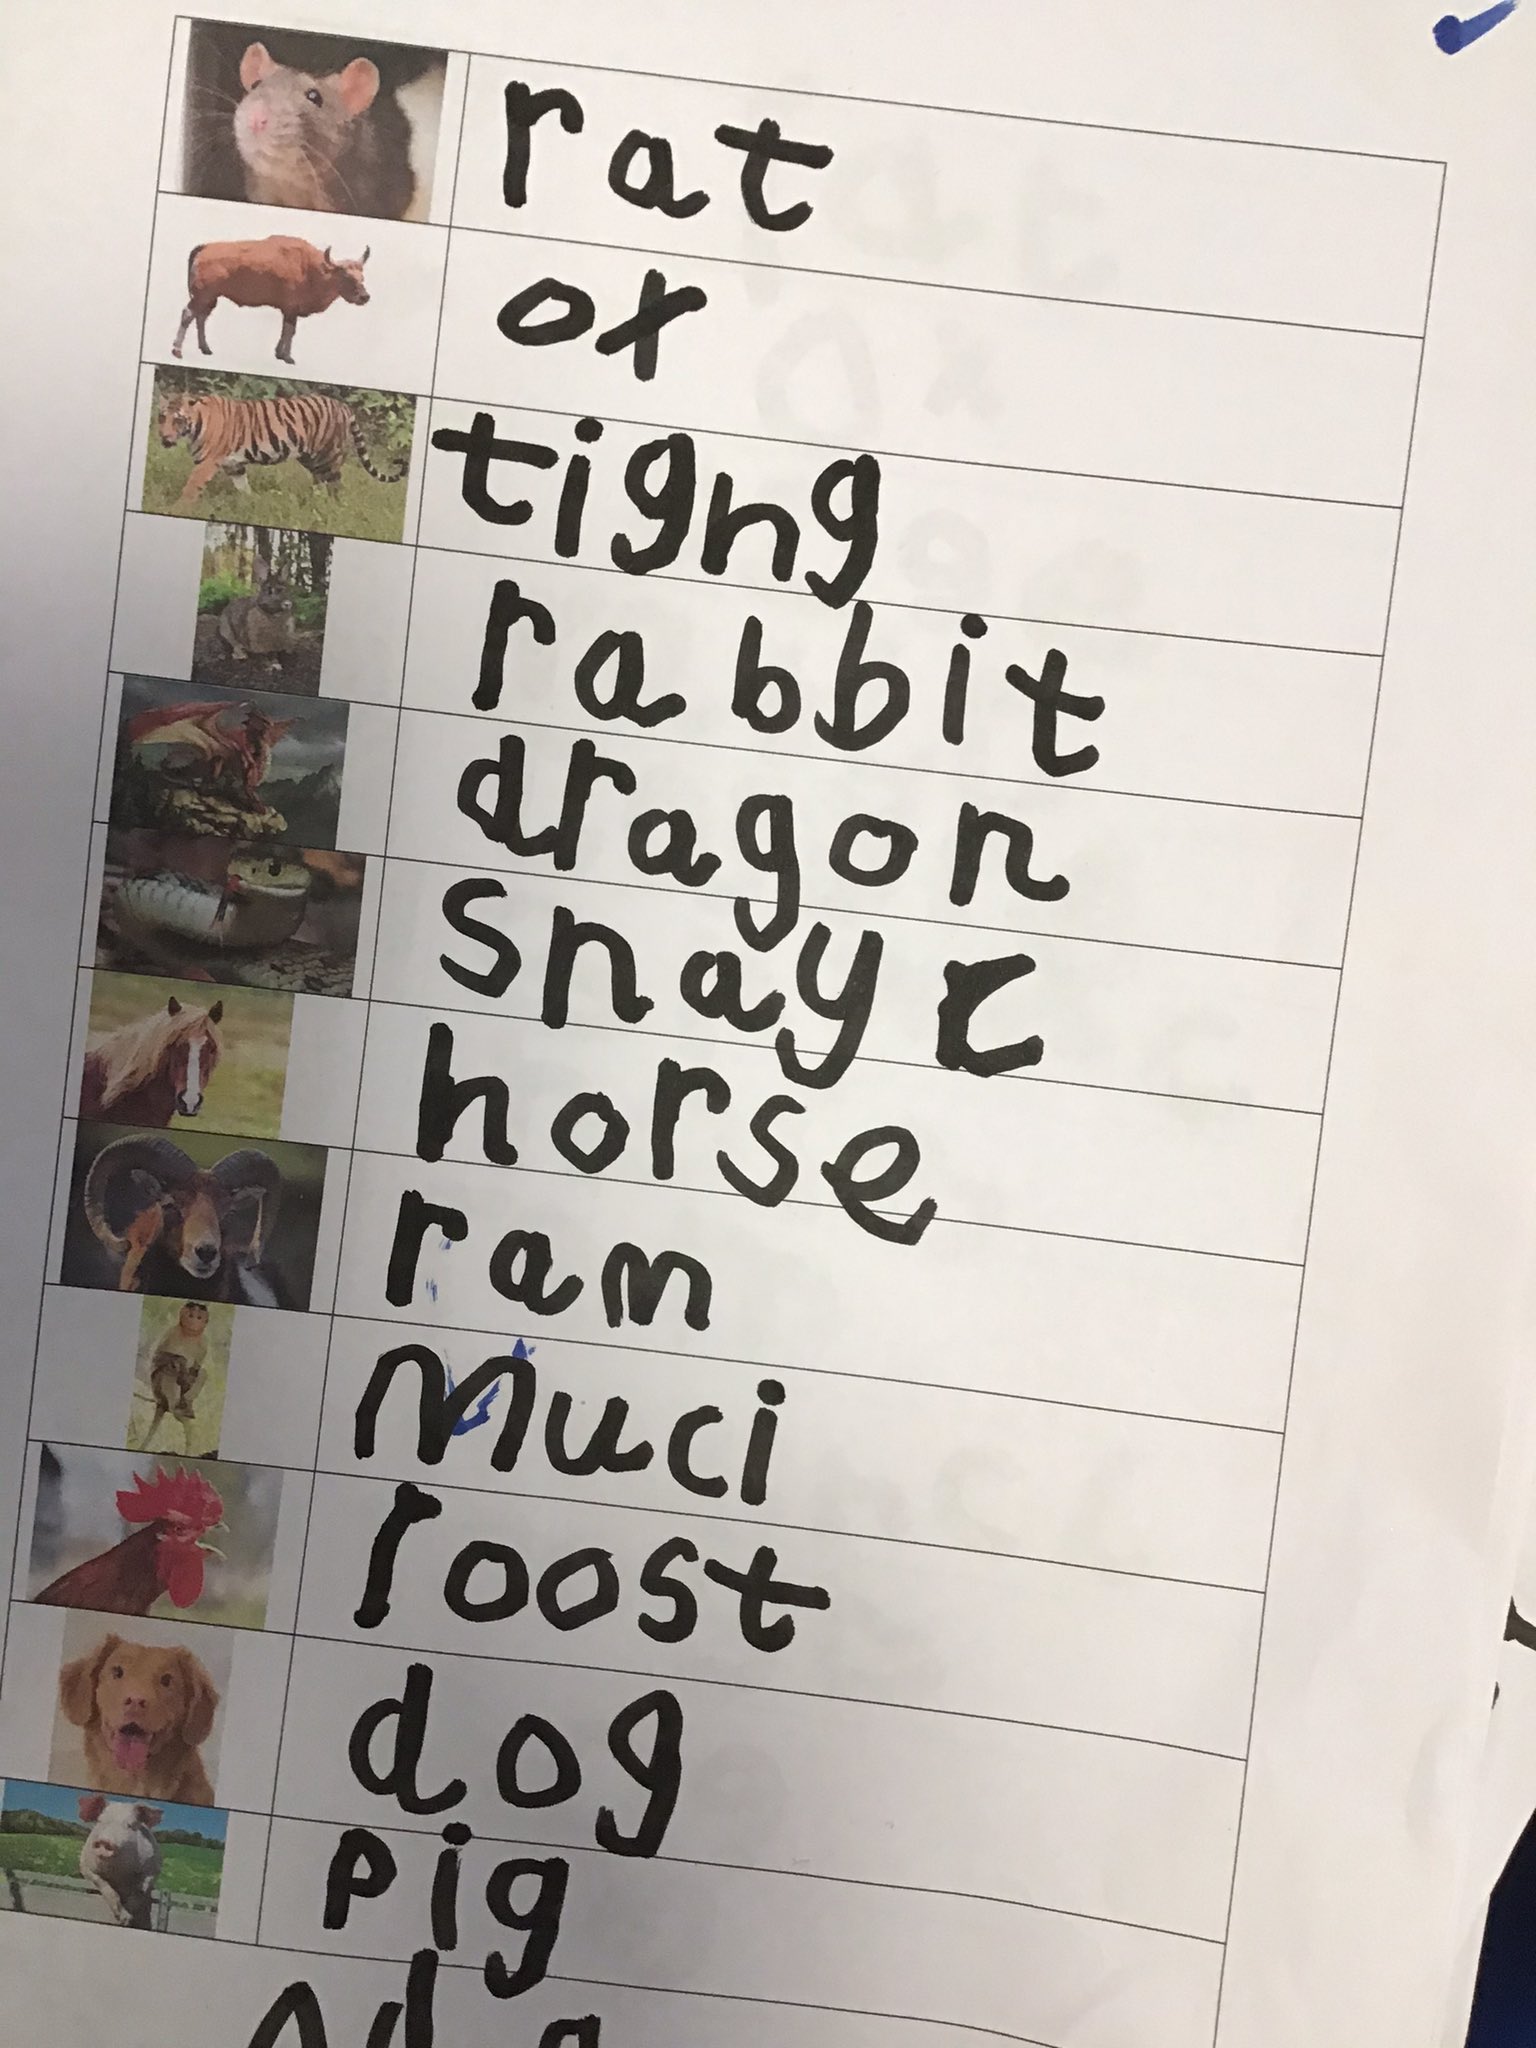 rat
ox
tigng
rabbit
dragon
snayc
horse
ram
Muci
roost
dog
pig